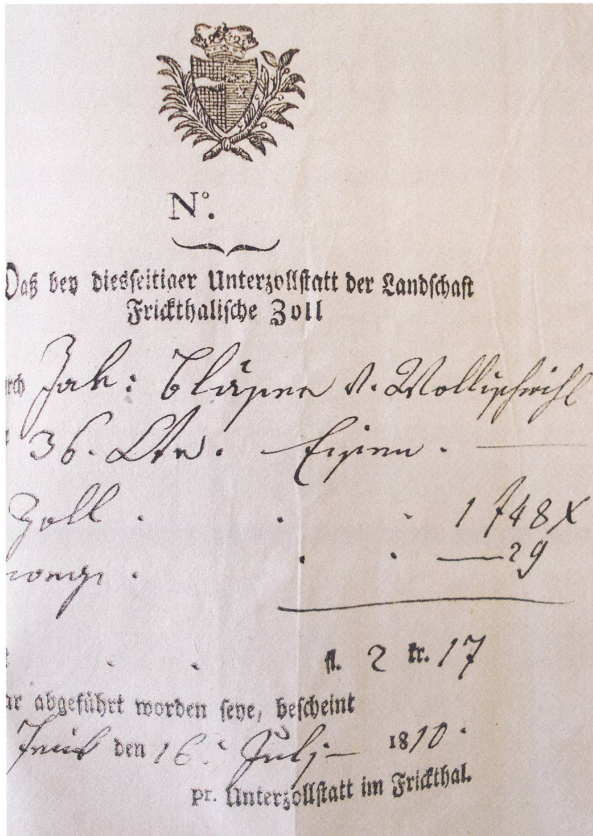 N°.
Daß bey diesseitiger Unterzollstatt der Landschaft
Frickthalische Zoll
rch Jak:
36. Ctr. Eisen.
Zoll . . . 1 f 48 x
. . . — 29
. . fl. 2 kr. 17
ar abgeführt worden seye, bescheint
den 16. Julj 1810.
pr. Unterzollstatt im Frickthal.